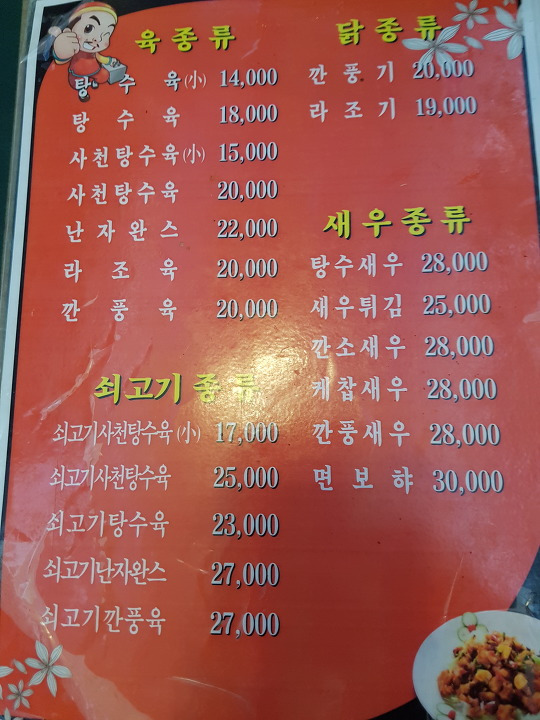 육종류
탕수육(小) 14,000
탕수육 18,000
사천탕수육(小) 15,000
사천탕수육 20,000
난자완스 22,000
라조육 20,000
깐풍육 20,000
쇠고기종류
쇠고기사천탕수육(小) 17,000
쇠고기사천탕수육 25,000
쇠고기탕수육 23,000
쇠고기난자완스 27,000
쇠고기깐풍육 27,000
닭종류
깐풍기 20,000
라조기 19,000
새우종류
탕수새우 28,000
새우튀김 25,000
깐소새우 28,000
케찹새우 28,000
깐풍새우 28,000
면보햐 30,000